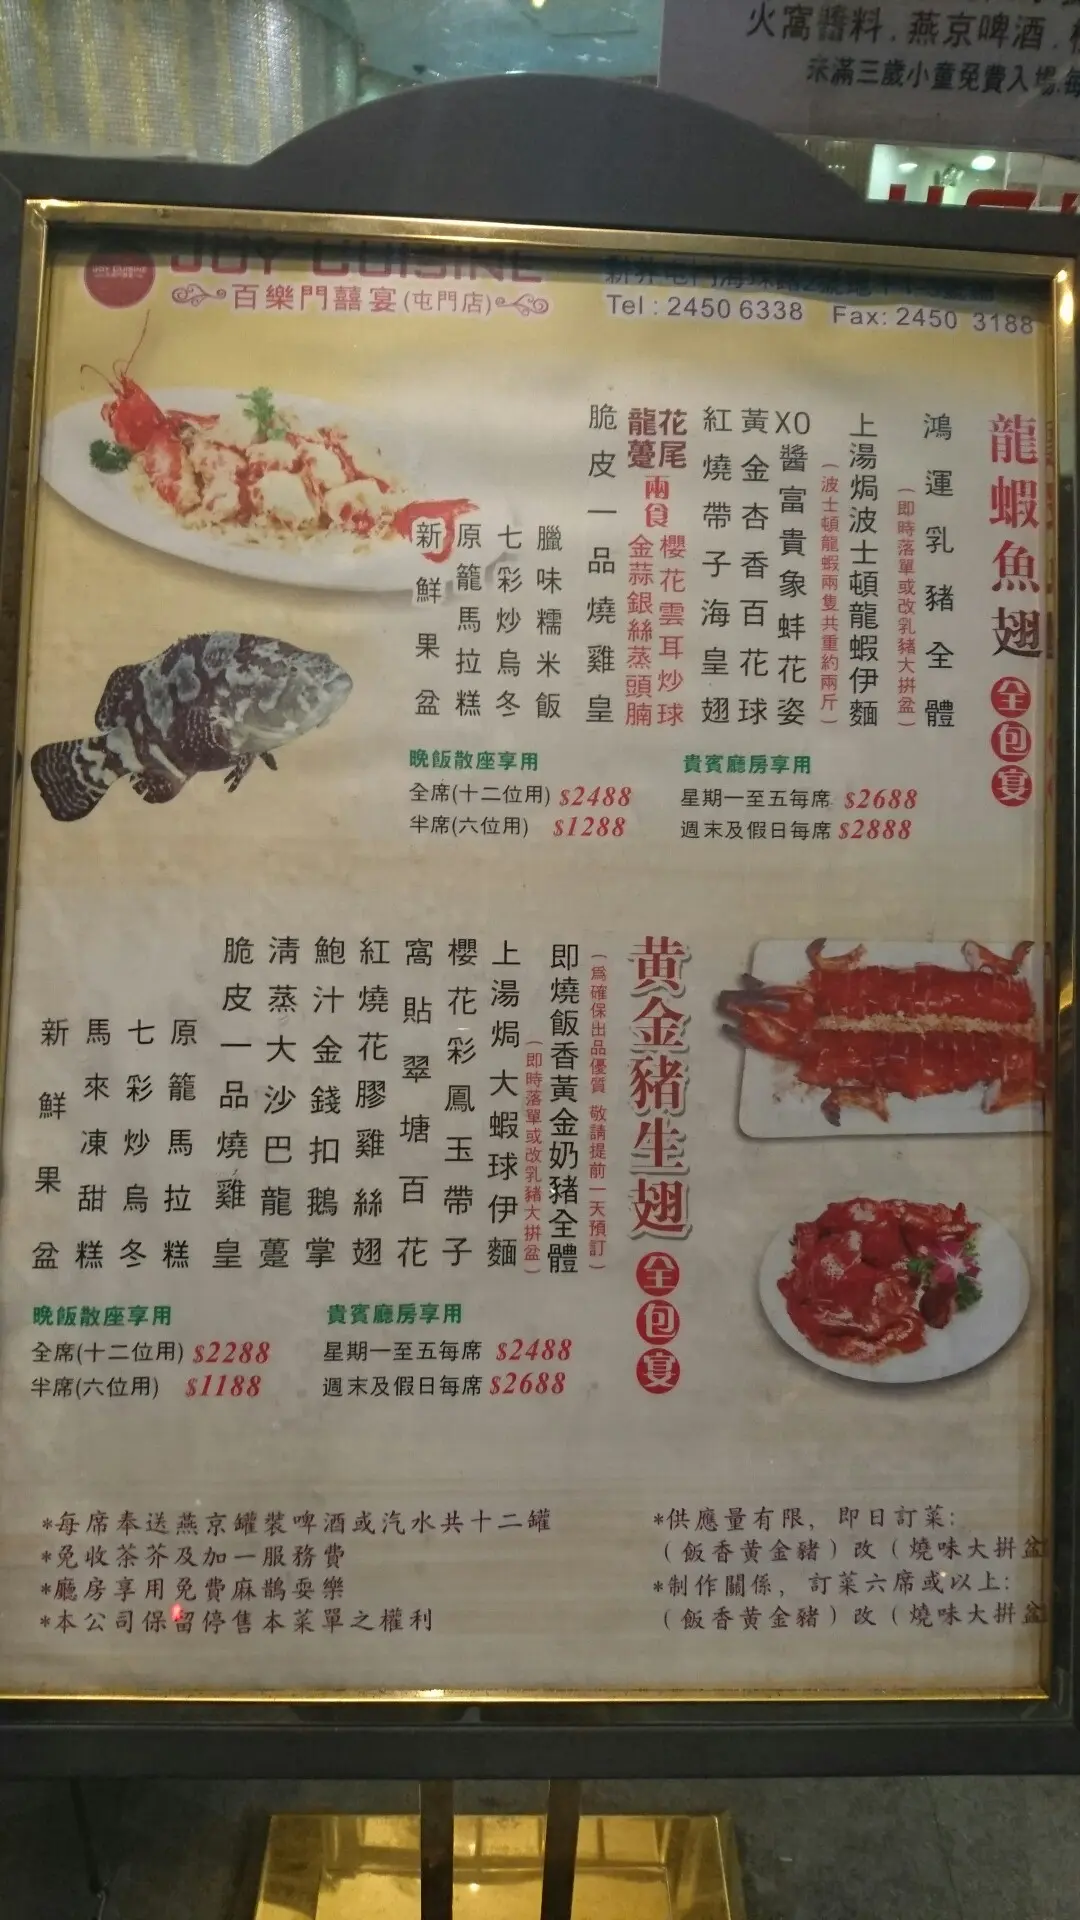 火窩醬料.燕京啤酒.
未滿三歲小童免費入場.每
JOY CUISINE
JOY CUISINE
百樂門囍宴(屯門店)
Tel : 2450 6338 Fax: 2450 3188
龍蝦魚翅全包宴
鴻運乳豬全體
(即時落單或改乳豬大拼盆)
上湯焗波士頓龍蝦伊麵
(波士頓龍蝦兩隻共重約兩斤)
XO醬富貴象蚌花姿
黃金杏香百花球
紅燒帶子海皇翅
花尾龍躉兩食
櫻花雲耳炒球
金蒜銀絲蒸頭腩
脆皮一品燒雞皇
臘味糯米飯
七彩炒烏冬
原籠馬拉糕
新鮮果盆
晚飯散座享用
全席(十二位用) $2488
半席(六位用) $1288
貴賓廳房享用
星期一至五每席 $2688
週末及假日每席 $2888
黃金豬生翅全包宴
(為確保出品優質 敬請提前一天預訂)
即燒飯香黃金奶豬全體
(即時落單或改乳豬大拼盆)
上湯焗大蝦球伊麵
櫻花彩鳳玉帶子
窩貼翠塘百花
紅燒花膠雞絲翅
鮑汁金錢扣鵝掌
清蒸大沙巴龍躉
脆皮一品燒雞皇
原籠馬拉糕
七彩炒烏冬
馬來凍甜糕
新鮮果盆
晚飯散座享用
全席(十二位用) $2288
半席(六位用) $1188
貴賓廳房享用
星期一至五每席 $2488
週末及假日每席 $2688
*每席奉送燕京罐裝啤酒或汽水共十二罐
*免收茶芥及加一服務費
*廳房享用免費麻鵲耍樂
*本公司保留停售本菜單之權利
*供應量有限，即日訂菜:
(飯香黃金豬)改(燒味大拼盆
*制作關係，訂菜六席或以上:
(飯香黃金豬)改(燒味大拼盆